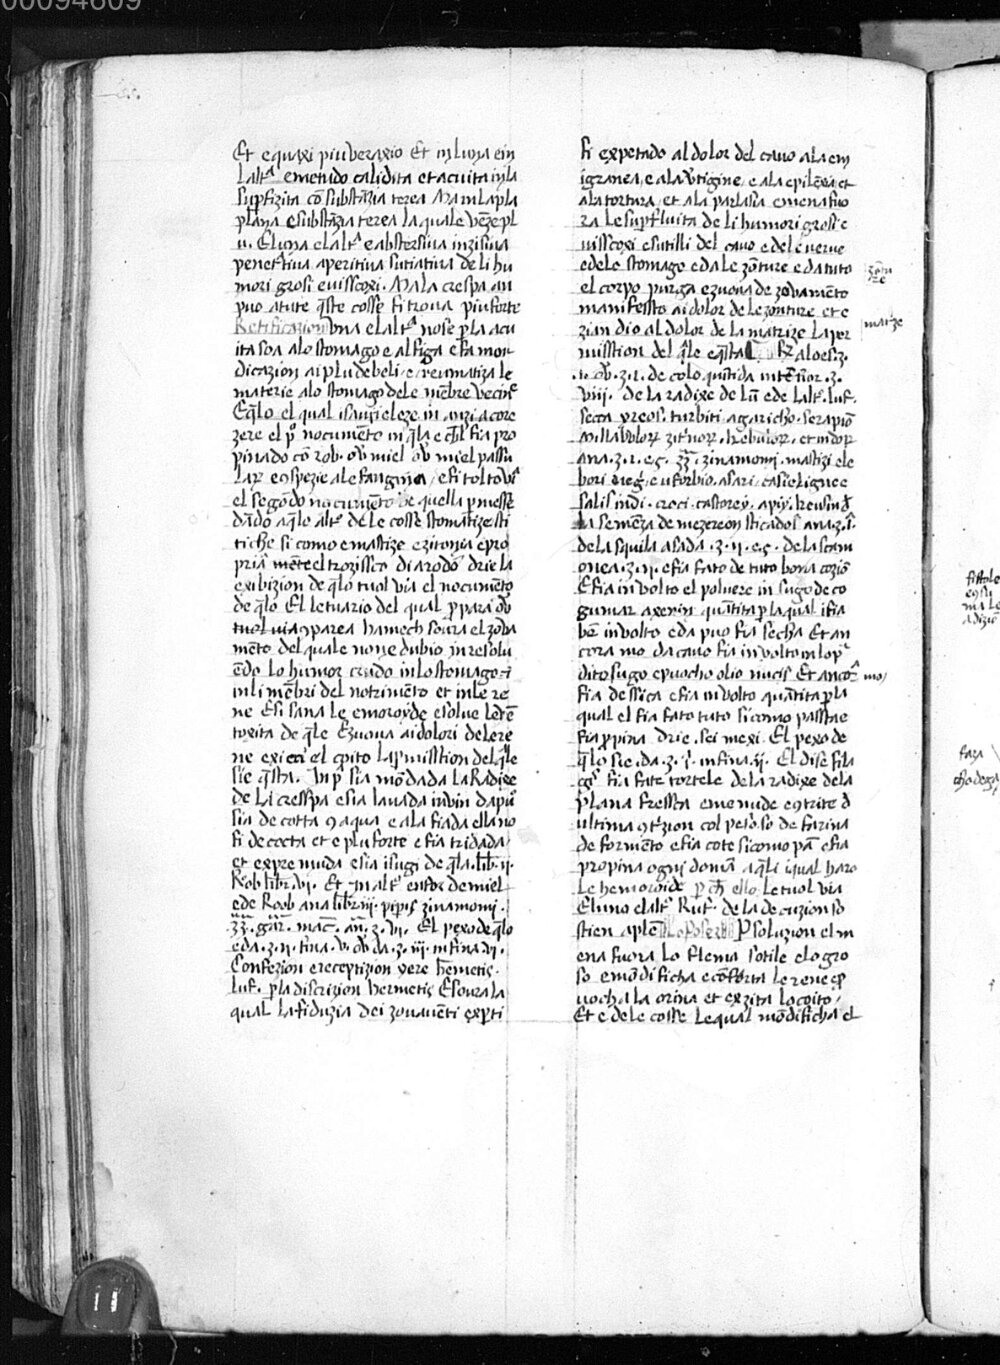 00094609
Et e quaxi piu veraxio Et in luna ein
laltͣ emetudo calidita et acuita inla
supfizita cō substāzia terea Ma in la pla
plana e substāzia terea la quale vēzepl
u. E luna e laltͣ e abstersiua inzisiua
penetͣtiua aperitiua sutiatiua de li hu
mori grosi e uisscoxi. Ma la crespa an
puo a tute q̄ste cosse si troua piu forte
Retificazion Una e laltͣ nose p̄ la acu
ita soa alo stomago e al figa e fa mor
dicazion ai piu debeli e reumatiza le
materie alo stomago de le mēbre vecinͤ
Eq̄lo el qual
zere el pͦ nocumēto in q̄la e
pinado cō rob. ov̄ miel ov̄ miel passu
laꝝ e spezie ale fangina e si tolto vͣ
el segōdo nocumēto de quella p messe
dādo a q̄le altͤ de le cosse stomatize sti
tiche si como e mastize e zitonia e pro
priā mēte el trozissco di arodō drie la
exibizion de q̄lo tuol via el nocumēto
de q̄lo El letuario del qual
tuol via hamech soura el zoua
mēto del quale none dubio in resolu
ēdo lo humor crudo in lo stomago e
in li mēbri del notrimēto et in le re
ne E si sana le emoroyde e solue le
toxita de q̄le E zuoua ai dolori de le re
ne exiccͣ el la pmisstion del q̄le
sie q̄sta. In pͣ sia mōdada la Radixe
de la cresspa e sia lauada in vin da pu
sia de cotta aqua e ala fiada ella no
si de cocta et e plu forte e sia tridada
et expremuda e sia i sugi de q̄la. lib. ij.
Rob libr. vi. Et in altͤ de miel
e de Roob ana libr iij. pipis zinamomi.
ʒʒ. gar. mac. an. ʒ. vi. El pexo de q̄lo
e da. ʒ. ij. fina. v. ov̄ da. ʒ. iij. infina. vi.
Confezion e receptizion yere hermetis.
luf. p̄ la discrizion hermetis E soura la
qual la fiduzia dei zouamēti exp̄ti
si expetado al dolor del cauo a la em
igranea, e ala vͤtigine, e ala epilēxia et
ala tortura, et ala parlasia e mena fuo
ra le sup̄fluita de li humori grosi e
uisscoxi e sutilli del cauo e de le nerue
e de lo stomago e da le zōture e da tuto
el corpo purga e zuoua de zouamēto
manifessto ai dolor de le zonture et e
zian dio al dolor de la matrize la per
misstion del q̄le e q̄sta. Rͬ aloes. ʒ.
de coloquītida ʒ.
viij. de la radixe de e de laltͣ. luf.
secca yreos. turbiti. agaricho. serapiō
Millabuloꝝ zitͥnoꝝ. kebuloꝝ. et indoꝝ
ana. ʒ. i. e. s. zinamomi. mastizi ele
bori nigͥ. euforbio. asari. casie lignee
salis indi. croci. castorey. apiy.
la semēza de mezereon sticados ana. ʒ. i.
de la squila asada. ʒ. ij. e. s. de la scam
onea. ʒ. ij. e sia fato de tuto bona cozio
E sia in volto el poluere in sugo de co
gumar axenin quātita p̄ la qual i sia
bē in volto e da puo sia secha Et an
cora mo da cauo sia in volto in lo pͣ
dito sugo e puocho olio nucis Et ancoͬ mo
sia dessica e sia in volto quātita p̄ la
qual el sia fato tuto si como passtae
sia ppina drie. sei mexi. El pexo de
q̄lo sie. da. ʒ. i. infina. ij. El dise fila
gͦ sia fate tortele de la radixe dela
plana fressca e monude e trite d
ultima cōtͥzion col peso so de farina
de formēto e sia cote si como pā e sia
propina ogni domā a q̄li i qual haro
le hemoroide p ch̄ ello. le tuol via
E luno e laltͦ Rufͦ. de la decuzion so
stien a plēͥ P soluzion el m
ena fuora lo flema sotile e lo gro
so e mōdificha e cōforta le rene e p
uocha la orina et exzita lo coito.
Et e de le cosse le qual mōdificha el
zōtu
re
matrize
fistole
ma le
fara
cho dega